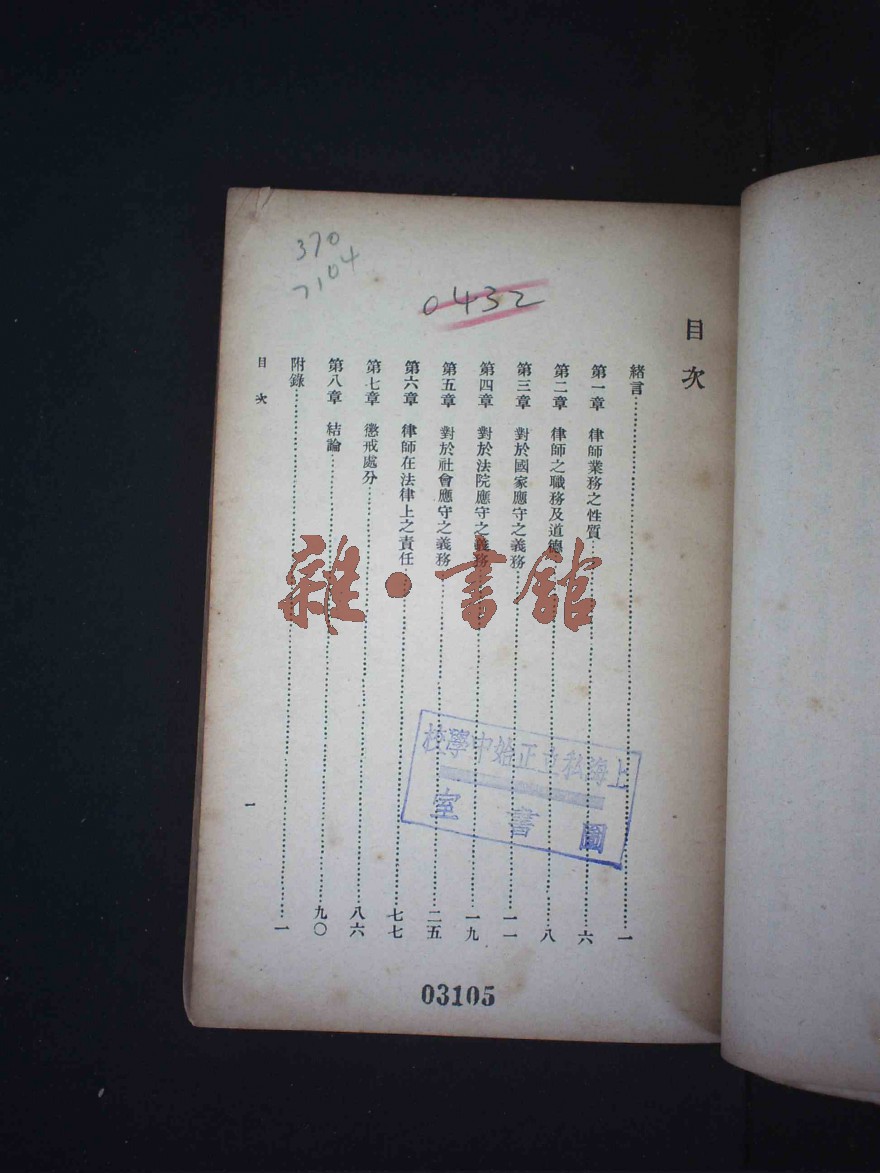 370
7104
0432
目次
緒言……一
第一章 律師業務之性質……六
第二章 律師之職務及道德……八
第三章 對於國家應守之義務……一一
第四章 對於法院應守之義務……一九
第五章 對於社會應守之義務……二五
第六章 律師在法律上之責任……七七
第七章 懲戒處分……八六
第八章 結論……九〇
附錄……一
目次
一
雜·書館
上海私立正始中學校
圖書室
03105